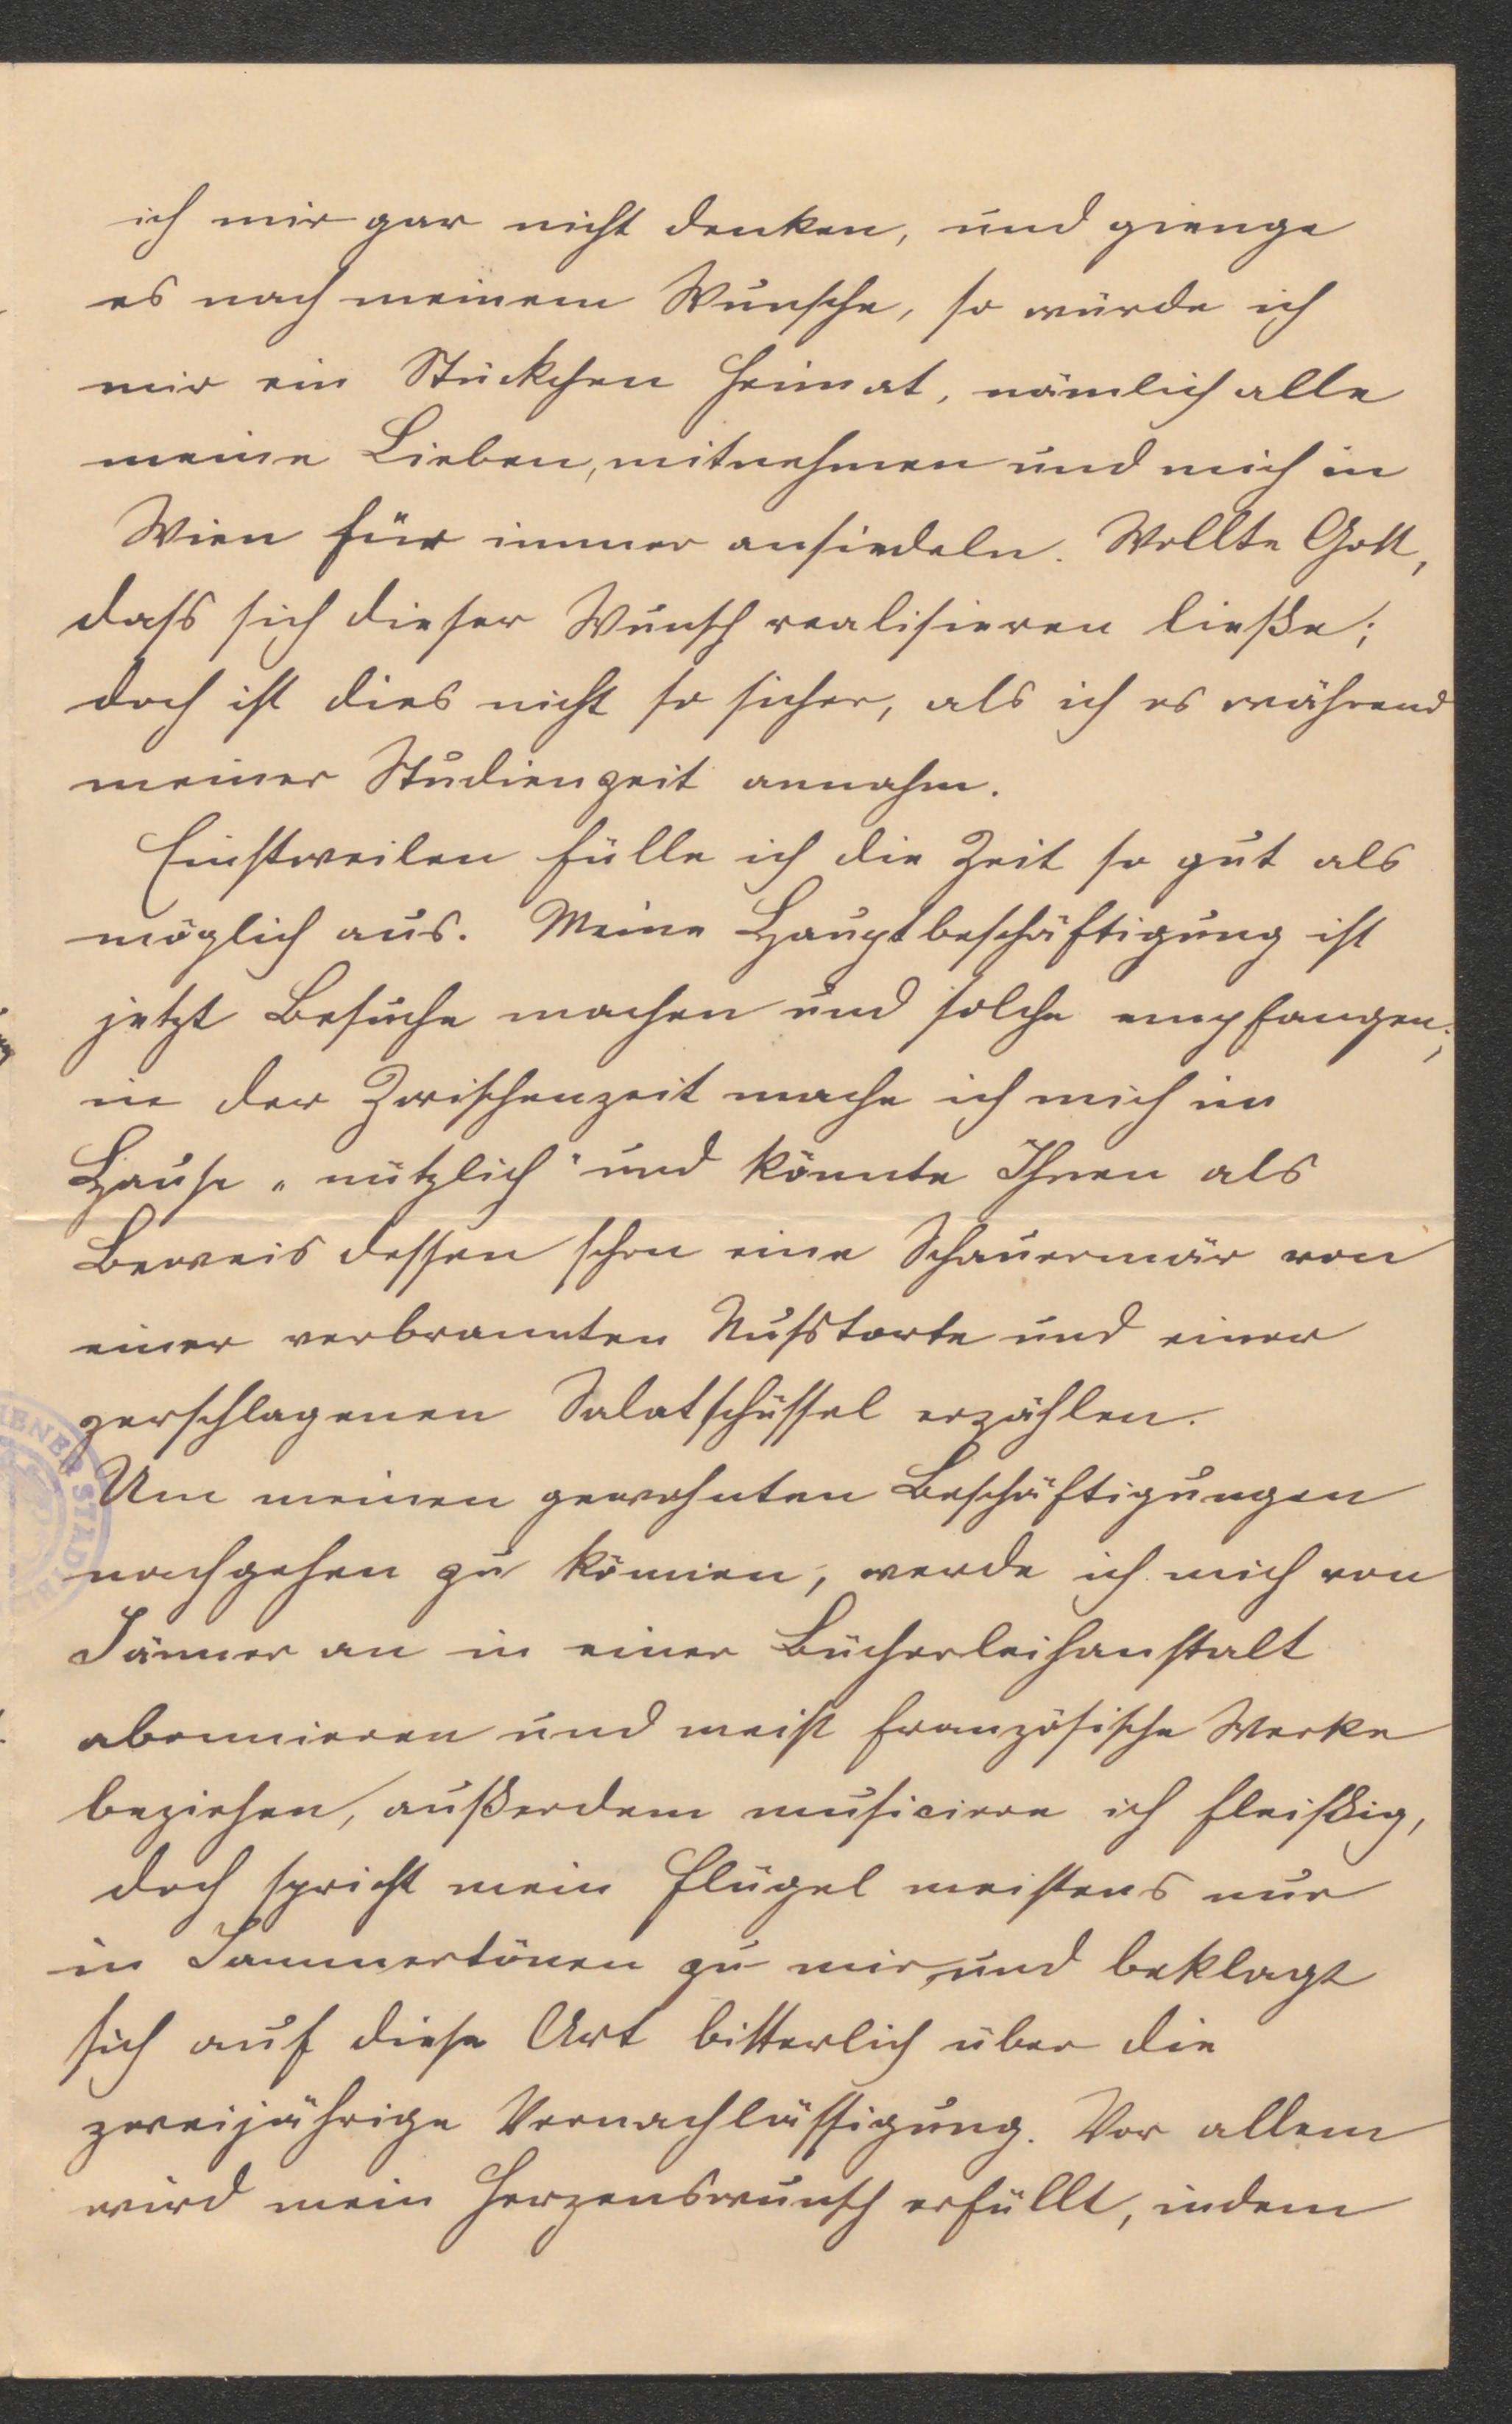 ich mir gar nicht denken, und gienge
es nach meinem Wunsche, so würde ich
mir ein Stückchen Heimat, nämlich alle
meine Lieben, mitnehmen und mich in
Wien für immer ansiedeln. Wollte Gott,
dass sich dieser Wunsch realisieren ließe;
doch ist dies nicht so sicher, als ich es während
meiner Studienzeit annahm.
Einstweilen fülle ich die Zeit so gut als
möglich aus. Meine Hauptbeschäftigung ist
jetzt Besuche machen und solche empfangen;
in der Zwischenzeit mache ich mich im
Hause „nützlich" und könnte Ihnen als
Beweis dessen schon eine Schauermär von
einer verbrannten Nusstorte und einer
zerschlagenen Salatschüssel erzählen.
Um meinen gewohnten Beschäftigungen
nachgehen zu können, werde ich mich von
Jänner an in einer Bücherleihanstalt
abonnieren und meist französische Werke
beziehen, außerdem musiciere ich fleißig,
doch spricht mein Flügel meistens nur
in Jammertönen zu mir, und beklagt
sich auf diese Art bitterlich über die
zweijährige Vernachlässigung. Vor allem
wird mein Herzenswunsch erfüllt, indem